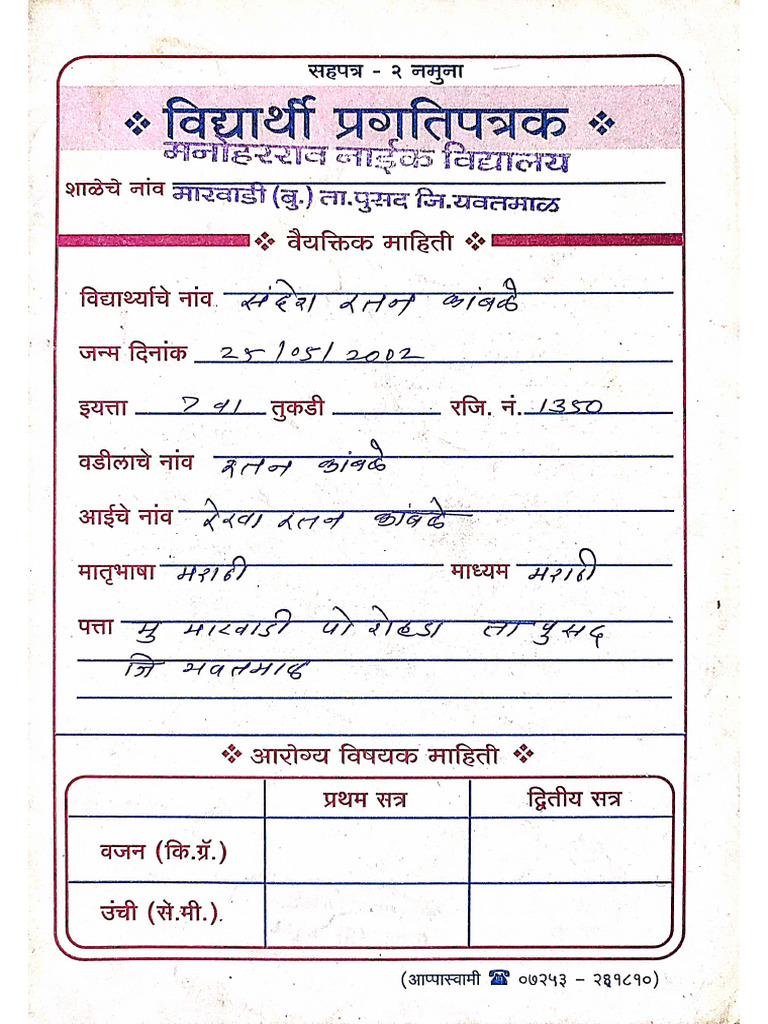 सहपत्र - २ नमुना
विद्यार्थी प्रगतिपत्रक
मनोहरराव नाईक विद्यालय
शाळेचे नांव मारवाडी (बु.) ता.पुसद जि.यवतमाळ
वैयक्तिक माहिती
विद्यार्थ्याचे नांव संदेश रतन कांबळे
जन्म दिनांक 25/05/2002
इयत्ता 7 वा तुकडी रजि. नं. 1350
वडीलाचे नांव रतन कांबळे
आईचे नांव रेखा रतन कांबळे
मातृभाषा मराठी माध्यम मराठी
पत्ता मु मारवाडी पो रोहडा ता पुसद
जि यवतमाळ
आरोग्य विषयक माहिती
प्रथम सत्र द्वितीय सत्र
वजन (कि.ग्रॅ.)
उंची (सें.मी.)
(आप्पास्वामी ☎ ०७२५३ - २६१८१०)